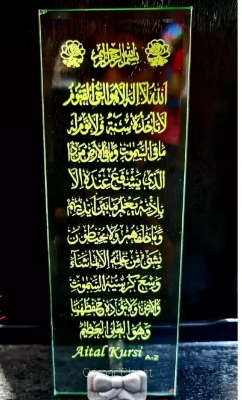 بسم الله الرحمن الرحيم
الله لا إله إلا هو الحي القيوم
لا تأخذه سنة ولا نوم له
ما في السموت وما في الأرض من ذا
الذي يشفع عنده إلا
بإذنه يعلم ما بين أيديهم
وما خلفهم ولا يحيطون
بشئ من علمه إلا بما شاء
وسع كرسيه السموت
والأرض ولا يؤده حفظهما
وهو العلي العظيم
Aital Kursi A-2